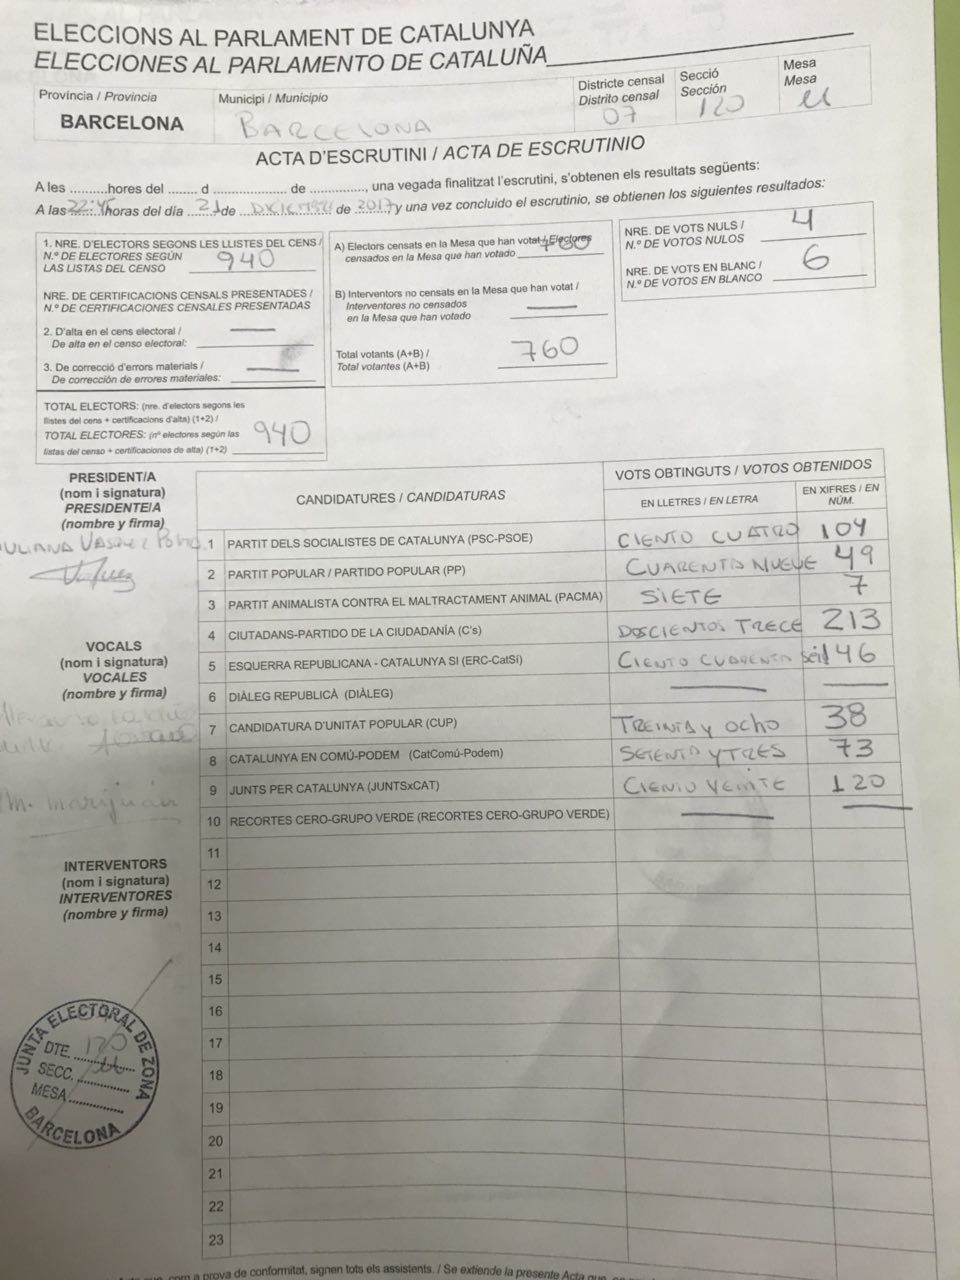 ELECCIONS AL PARLAMENT DE CATALUNYA
ELECCIONES AL PARLAMENTO DE CATALUÑA
Província / Provincia
BARCELONA
Municipi / Municipio
BARCELONA
Districte censal
Distrito censal
07
Secció
Sección
120
Mesa
Mesa
ACTA D'ESCRUTINI / ACTA DE ESCRUTINIO
A les ..........hores del ........ d ..................... de ..............., una vegada finalitzat l'escrutini, s'obtenen els resultats següents:
A las 22:45 horas del día 21 de DICIEMBRE de 2017 y una vez concluido el escrutinio, se obtienen los siguientes resultados:
1. NRE. D'ELECTORS SEGONS LES LLISTES DEL CENS /
N.º DE ELECTORES SEGÚN
LAS LISTAS DEL CENSO 940
NRE. DE CERTIFICACIONS CENSALS PRESENTADES /
N.º DE CERTIFICACIONES CENSALES PRESENTADAS
2. D'alta en el cens electoral /
De alta en el censo electoral: —
3. De correcció d'errors materials /
De corrección de errores materiales: —
TOTAL ELECTORS: (nre. d'electors segons les
llistes del cens + certificacions d'alta) (1+2) /
TOTAL ELECTORES: (nº electores según las
listas del censo + certificaciones de alta) (1+2) 940
A) Electors censats en la Mesa que han votat / Electores
censados en la Mesa que han votado 760
B) Interventors no censats en la Mesa que han votat /
Interventores no censados
en la Mesa que han votado —
Total votants (A+B) /
Total votantes (A+B) 760
NRE. DE VOTS NULS /
N.º DE VOTOS NULOS 4
NRE. DE VOTS EN BLANC /
N.º DE VOTOS EN BLANCO 6
PRESIDENT/A
(nom i signatura)
PRESIDENTE/A
(nombre y firma)
VOCALS
(nom i signatura)
VOCALES
(nombre y firma)
M. Marijuán
INTERVENTORS
(nom i signatura)
INTERVENTORES
(nombre y firma)
CANDIDATURES / CANDIDATURAS
VOTS OBTINGUTS / VOTOS OBTENIDOS
EN LLETRES / EN LETRA
EN XIFRES / EN NÚM.
1 PARTIT DELS SOCIALISTES DE CATALUNYA (PSC-PSOE) CIENTO CUATRO 104
2 PARTIT POPULAR / PARTIDO POPULAR (PP) CUARENTA NUEVE 49
3 PARTIT ANIMALISTA CONTRA EL MALTRACTAMENT ANIMAL (PACMA) SIETE 7
4 CIUTADANS-PARTIDO DE LA CIUDADANÍA (C's) DOSCIENTOS TRECE 213
5 ESQUERRA REPUBLICANA - CATALUNYA SI (ERC-CatSí) CIENTO CUARENTA SEIS 146
6 DIÀLEG REPUBLICÀ (DIÀLEG) — —
7 CANDIDATURA D'UNITAT POPULAR (CUP) TREINTA Y OCHO 38
8 CATALUNYA EN COMÚ-PODEM (CatComú-Podem) SETENTA Y TRES 73
9 JUNTS PER CATALUNYA (JUNTSxCAT) CIENTO VEINTE 120
10 RECORTES CERO-GRUPO VERDE (RECORTES CERO-GRUPO VERDE) — —
11
12
13
14
15
16
17
18
19
20
21
22
23
JUNTA ELECTORAL DE ZONA
DTE. 120
SECC.
MESA
BARCELONA
com a prova de conformitat, signen tots els assistents. / Se extiende la presente Acta que,